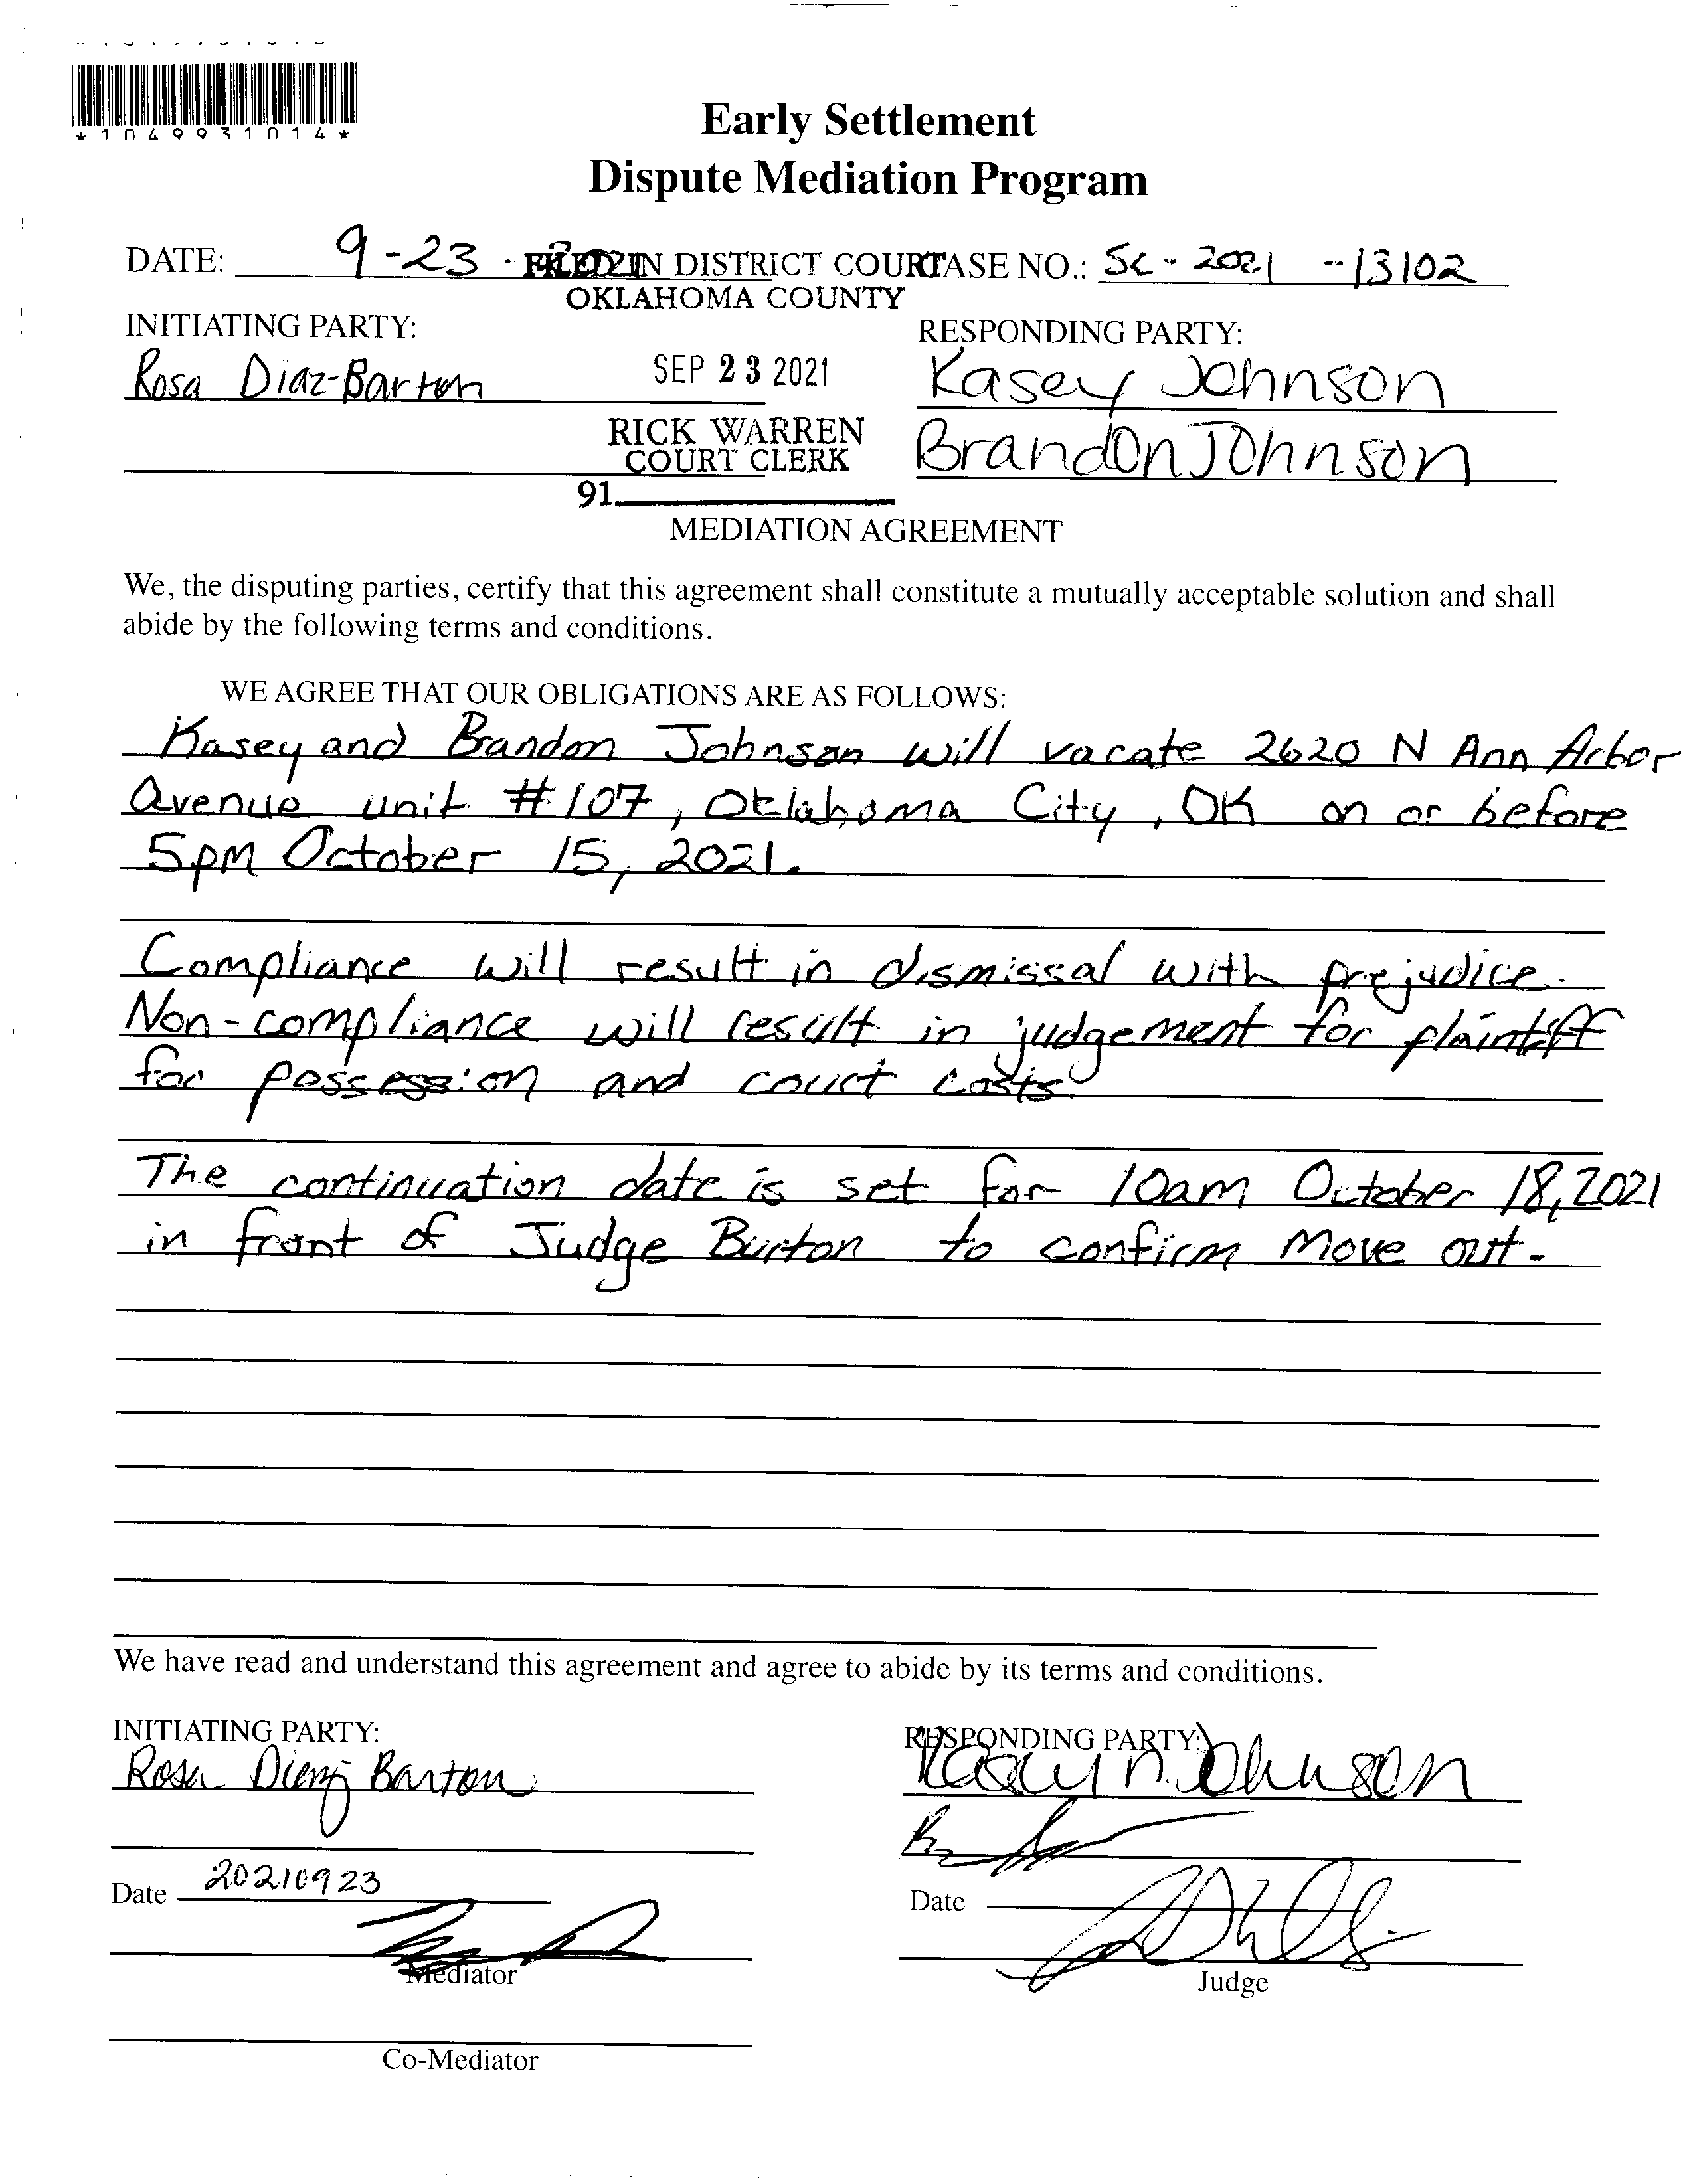 *1049931014*
Early Settlement
Dispute Mediation Program
DATE: 9-23-2021 CASE NO.: SC-2021--13102
FILED IN DISTRICT COURT
OKLAHOMA COUNTY
INITIATING PARTY: RESPONDING PARTY:
Rosa Diaz-Barton SEP 23 2021 Kasey Johnson
RICK WARREN Brandon Johnson
COURT CLERK
91
MEDIATION AGREEMENT
We, the disputing parties, certify that this agreement shall constitute a mutually acceptable solution and shall
abide by the following terms and conditions.
WE AGREE THAT OUR OBLIGATIONS ARE AS FOLLOWS:
Kasey and Brandon Johnson will vacate 2620 N Ann Arbor
Avenue unit #107, Oklahoma City, OK on or before
5pm October 15, 2021.
Compliance will result in dismissal with prejudice.
Non-compliance will result in judgement for plaintiff
for possession and court costs.
The continuation date is set for 10am October 18, 2021
in front of Judge Burton to confirm move out.
We have read and understand this agreement and agree to abide by its terms and conditions.
INITIATING PARTY: RESPONDING PARTY:
Rosa Diaz Barton Kasey n. Johnson
Date 20210923 Date
Mediator Judge
Co-Mediator